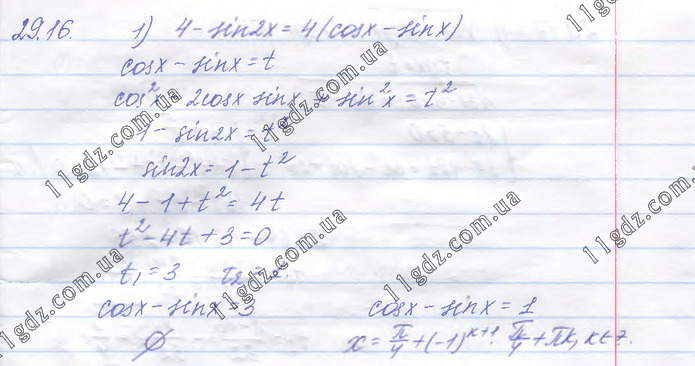 29.16. 1) 4 - sin2x = 4(cosx - sinx)
cosx - sinx = t
cos²x - 2cosx sinx + sin²x = t²
1 - sin2x = t²
sin2x = 1 - t²
4 - 1 + t² = 4t
t² - 4t + 3 = 0
t₁ = 3 t₂ =
cosx - sinx = 3 cosx - sinx = 1
∅ x = π/4 + (-1)^(k+1) · π/4 + πk, k∈Z.
11gdz.com.ua
11gdz.com.ua
11gdz.com.ua
11gdz.com.ua
11gdz.com.ua
11gdz.com.ua